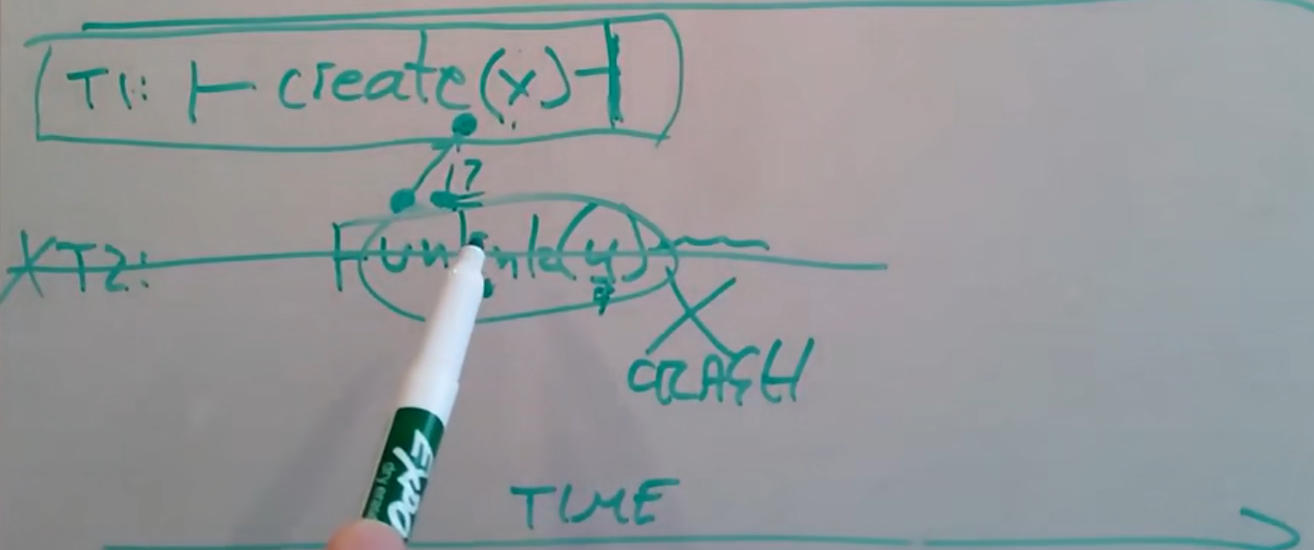 T1: |— create(x) —|
17
XT2: |unlink(y)
CRASH
EXPO
dry erase
TIME